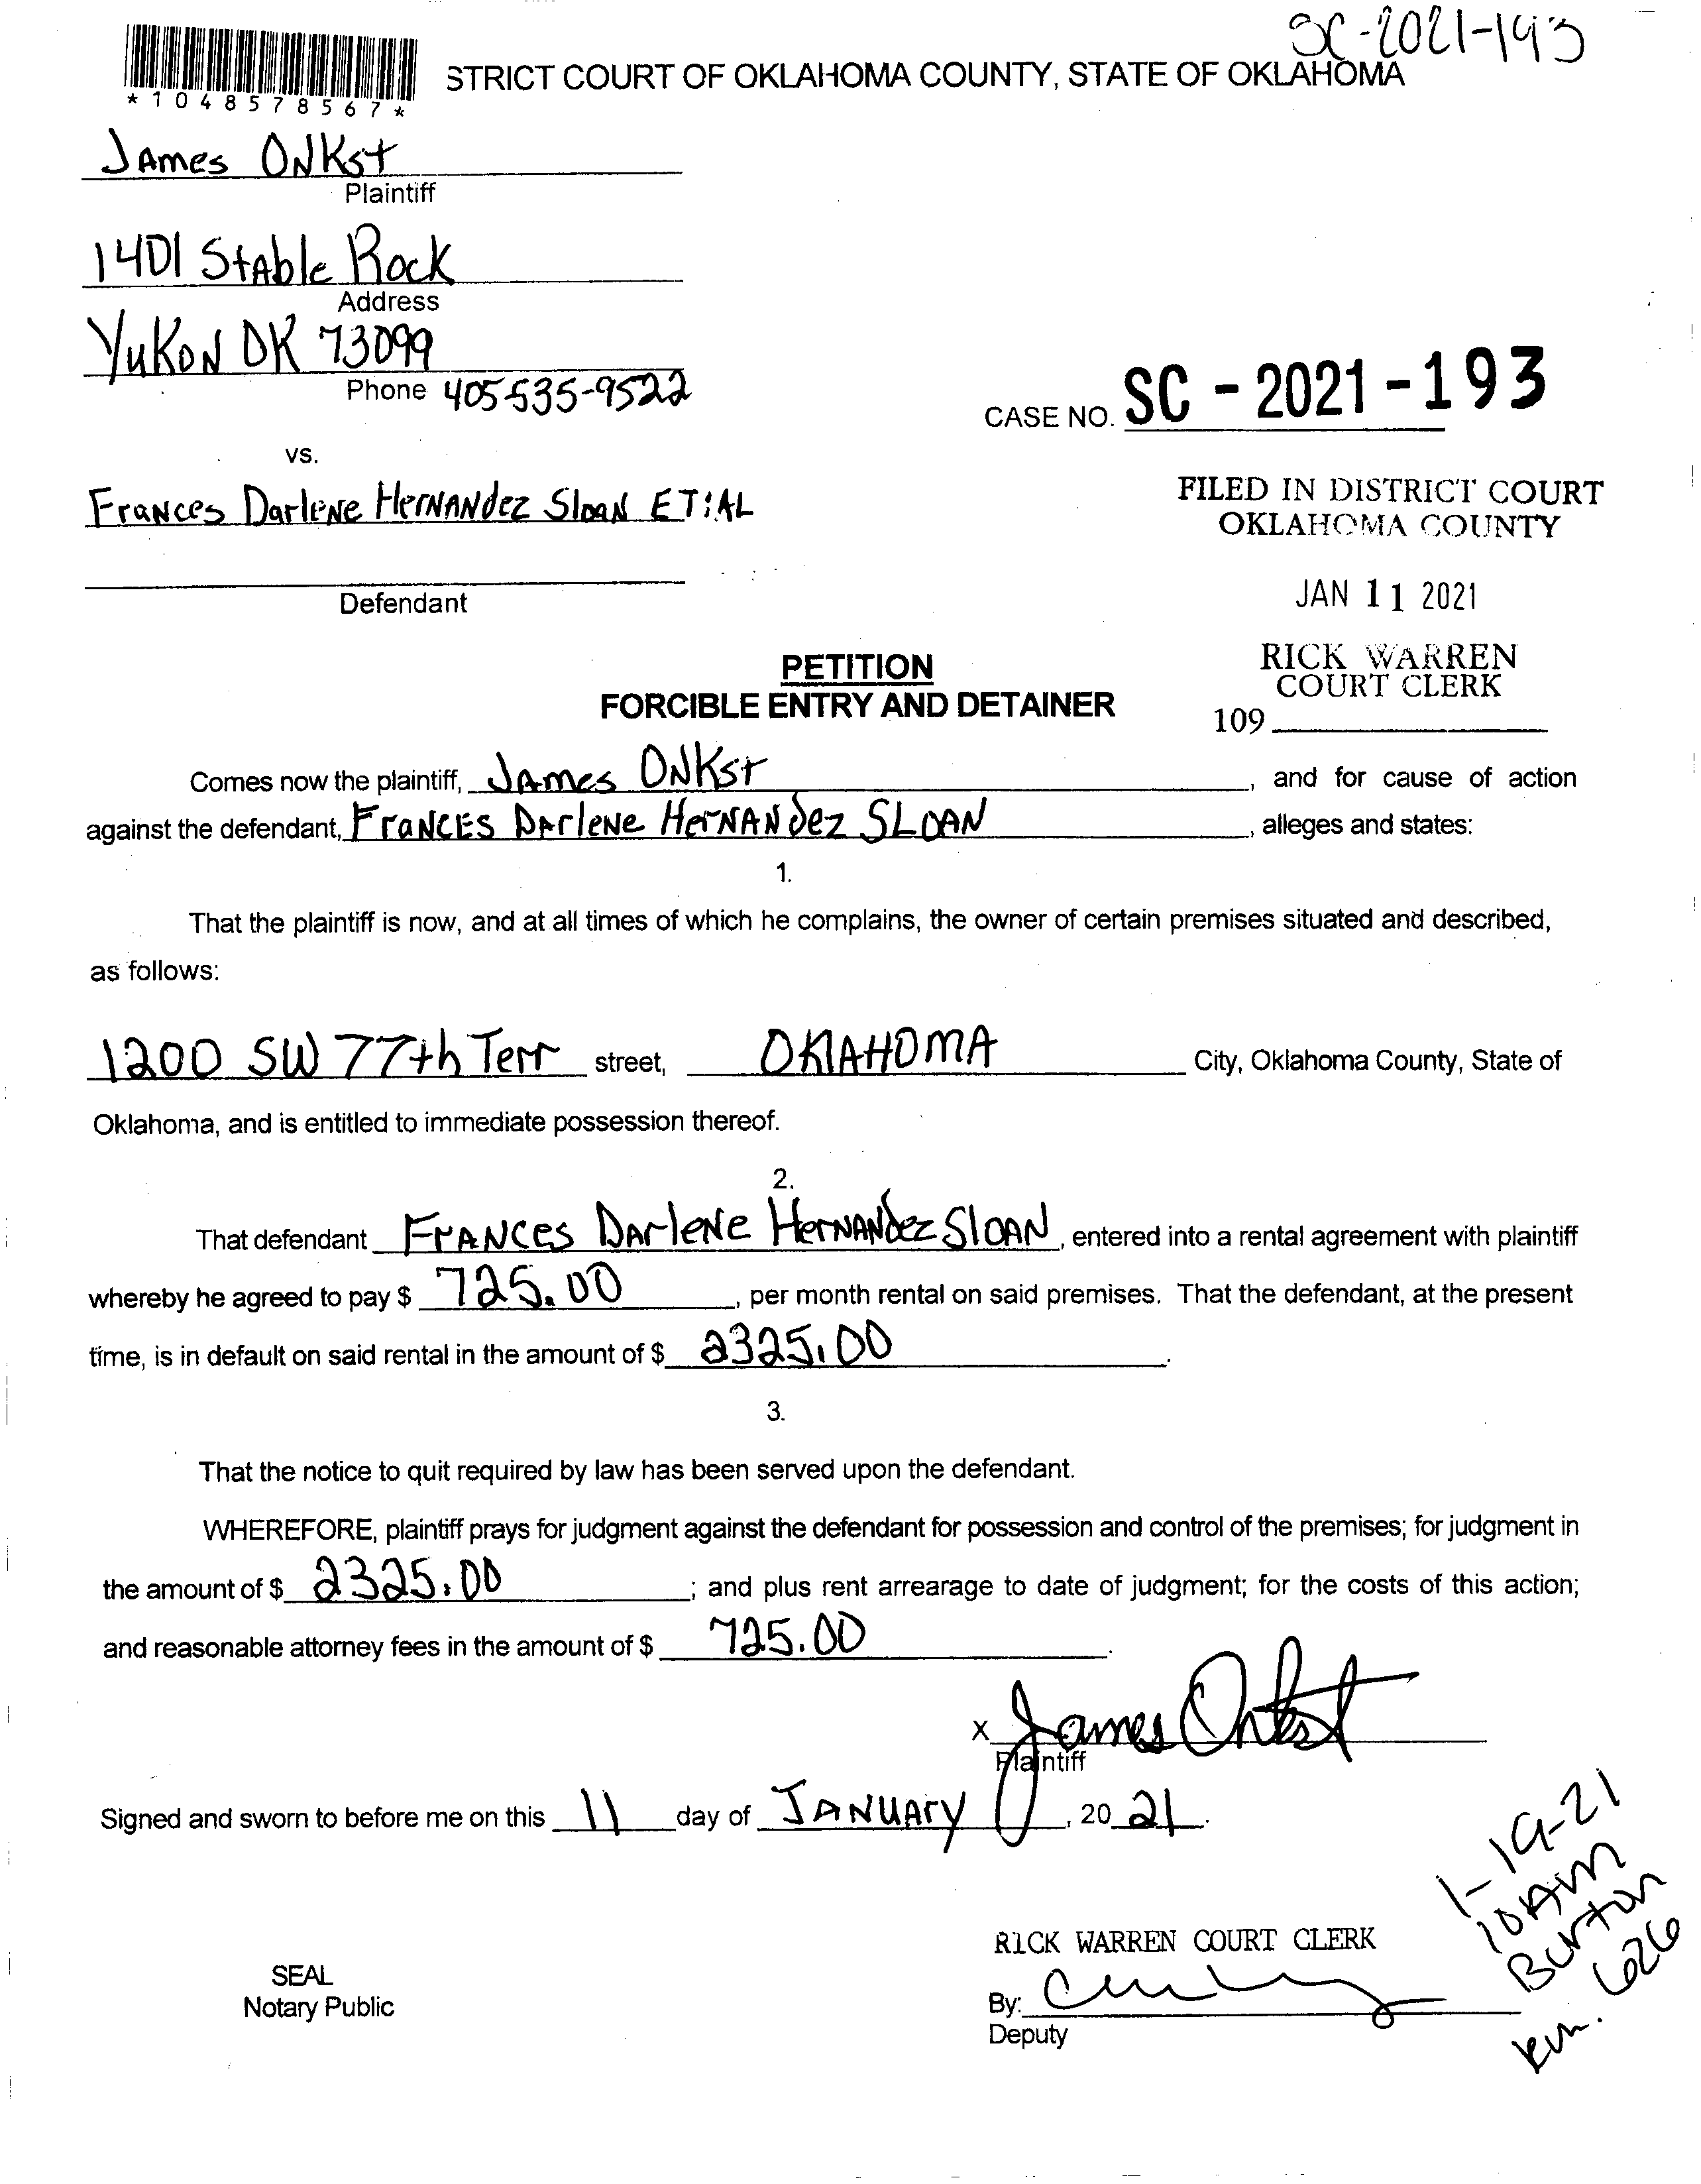 SC-2021-193
STRICT COURT OF OKLAHOMA COUNTY, STATE OF OKLAHOMA
*1048578567*
JAmes ONKst
Plaintiff
1401 StAble Rock
Address
YuKoN OK 73099
Phone 405-535-9522
CASE NO. SC - 2021 - 193
vs.
Frances Darlene HerNANdez SloaN ET:AL
FILED IN DISTRICT COURT
OKLAHOMA COUNTY
JAN 11 2021
Defendant
RICK WARREN
COURT CLERK
109
PETITION
FORCIBLE ENTRY AND DETAINER
Comes now the plaintiff, JAmes ONKst, and for cause of action
against the defendant, FraNCES DArleNe HerNANdez SLOAN, alleges and states:
1.
That the plaintiff is now, and at all times of which he complains, the owner of certain premises situated and described,
as follows:
1200 SW 77th Terr street, OKlAHOMA City, Oklahoma County, State of
Oklahoma, and is entitled to immediate possession thereof.
2.
That defendant FrANCes DArleNe HerNANdez SlOAN, entered into a rental agreement with plaintiff
whereby he agreed to pay $ 725.00, per month rental on said premises. That the defendant, at the present
time, is in default on said rental in the amount of $ 2325.00.
3.
That the notice to quit required by law has been served upon the defendant.
WHEREFORE, plaintiff prays for judgment against the defendant for possession and control of the premises; for judgment in
the amount of $ 2325.00; and plus rent arrearage to date of judgment; for the costs of this action;
and reasonable attorney fees in the amount of $ 725.00.
X James Onkst
Plaintiff
Signed and sworn to before me on this 11 day of JANUAry, 20 21.
1-19-21
10Am
Burton
rm. 626
RICK WARREN COURT CLERK
SEAL
Notary Public
By:
Deputy